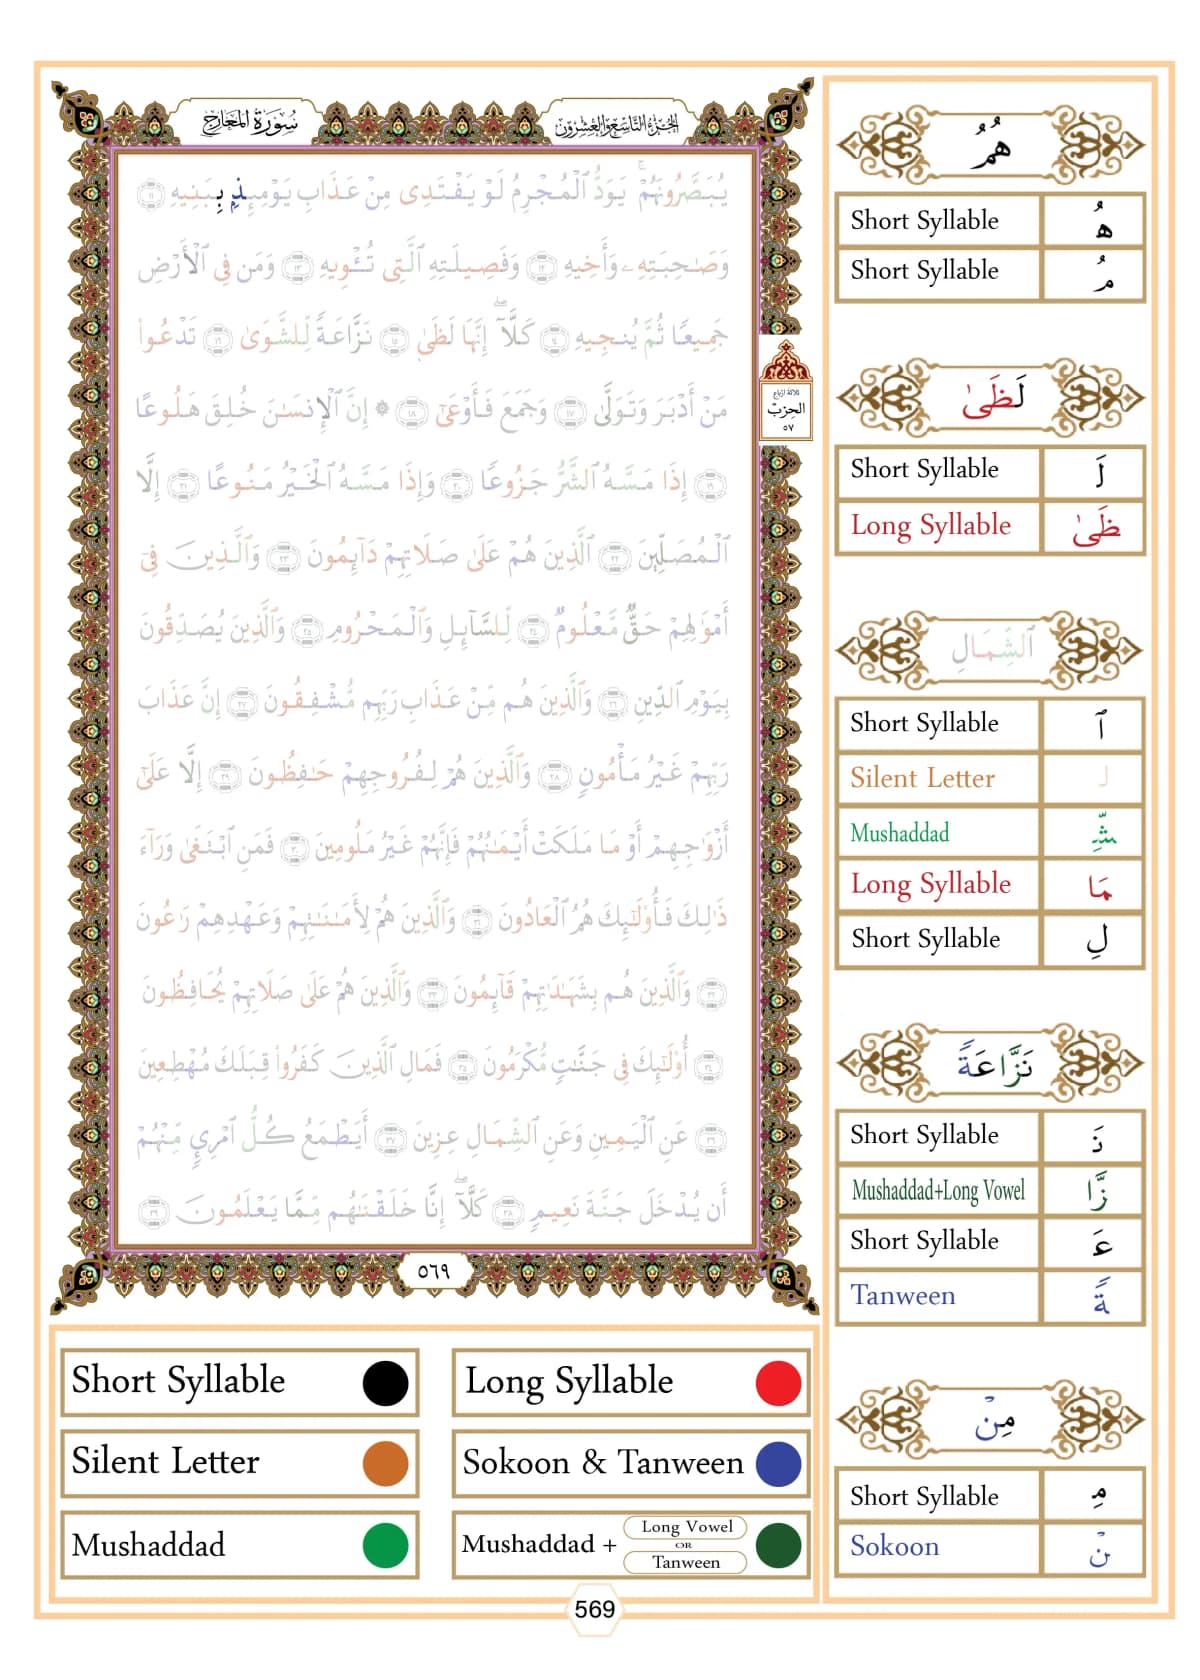 سُورَةُ المَعَارِجِ
الجُزْءُ التَّاسِعُ وَالعِشْرُونَ
يُبَصَّرُونَهُمْۚ يَوَدُّ ٱلْمُجْرِمُ لَوْ يَفْتَدِى مِنْ عَذَابِ يَوْمِئِذٍۭ بِبَنِيهِ ١١
وَصَٰحِبَتِهِۦ وَأَخِيهِ ١٢ وَفَصِيلَتِهِ ٱلَّتِى تُـْٔوِيهِ ١٣ وَمَن فِى ٱلْأَرْضِ
جَمِيعًا ثُمَّ يُنجِيهِ ١٤ كَلَّآۖ إِنَّهَا لَظَىٰ ١٥ نَزَّاعَةً لِّلشَّوَىٰ ١٦ تَدْعُوا۟
مَنْ أَدْبَرَ وَتَوَلَّىٰ ١٧ وَجَمَعَ فَأَوْعَىٰٓ ١٨ ۞ إِنَّ ٱلْإِنسَٰنَ خُلِقَ هَلُوعًا
١٩ إِذَا مَسَّهُ ٱلشَّرُّ جَزُوعًا ٢٠ وَإِذَا مَسَّهُ ٱلْخَيْرُ مَنُوعًا ٢١ إِلَّا
ٱلْمُصَلِّينَ ٢٢ ٱلَّذِينَ هُمْ عَلَىٰ صَلَاتِهِمْ دَآئِمُونَ ٢٣ وَٱلَّذِينَ فِىٓ
أَمْوَٰلِهِمْ حَقٌّ مَّعْلُومٌ ٢٤ لِّلسَّآئِلِ وَٱلْمَحْرُومِ ٢٥ وَٱلَّذِينَ يُصَدِّقُونَ
بِيَوْمِ ٱلدِّينِ ٢٦ وَٱلَّذِينَ هُم مِّنْ عَذَابِ رَبِّهِم مُّشْفِقُونَ ٢٧ إِنَّ عَذَابَ
رَبِّهِمْ غَيْرُ مَأْمُونٍ ٢٨ وَٱلَّذِينَ هُمْ لِفُرُوجِهِمْ حَٰفِظُونَ ٢٩ إِلَّا عَلَىٰٓ
أَزْوَٰجِهِمْ أَوْ مَا مَلَكَتْ أَيْمَٰنُهُمْ فَإِنَّهُمْ غَيْرُ مَلُومِينَ ٣٠ فَمَنِ ٱبْتَغَىٰ وَرَآءَ
ذَٰلِكَ فَأُو۟لَٰٓئِكَ هُمُ ٱلْعَادُونَ ٣١ وَٱلَّذِينَ هُمْ لِأَمَٰنَٰتِهِمْ وَعَهْدِهِمْ رَٰعُونَ
٣٢ وَٱلَّذِينَ هُم بِشَهَٰدَٰتِهِمْ قَآئِمُونَ ٣٣ وَٱلَّذِينَ هُمْ عَلَىٰ صَلَاتِهِمْ يُحَافِظُونَ
٣٤ أُو۟لَٰٓئِكَ فِى جَنَّٰتٍ مُّكْرَمُونَ ٣٥ فَمَالِ ٱلَّذِينَ كَفَرُوا۟ قِبَلَكَ مُهْطِعِينَ
٣٦ عَنِ ٱلْيَمِينِ وَعَنِ ٱلشِّمَالِ عِزِينَ ٣٧ أَيَطْمَعُ كُلُّ ٱمْرِئٍ مِّنْهُمْ
أَن يُدْخَلَ جَنَّةَ نَعِيمٍ ٣٨ كَلَّآۖ إِنَّا خَلَقْنَٰهُم مِّمَّا يَعْلَمُونَ ٣٩
ثلاثة أرباع
الحِزبْ
٥٧
٥٦٩
هُمُ
Short Syllable هُ
Short Syllable مُ
لَظَىٰ
Short Syllable لَ
Long Syllable ظَىٰ
ٱلشِّمَالِ
Short Syllable ٱ
Silent Letter ل
Mushaddad شِّ
Long Syllable مَا
Short Syllable لِ
نَزَّاعَةً
Short Syllable نَ
Mushaddad+Long Vowel زَّا
Short Syllable عَ
Tanween ةً
مِنْ
Short Syllable مِ
Sokoon نْ
Short Syllable
Long Syllable
Silent Letter
Sokoon & Tanween
Mushaddad
Mushaddad + Long Vowel OR Tanween
569